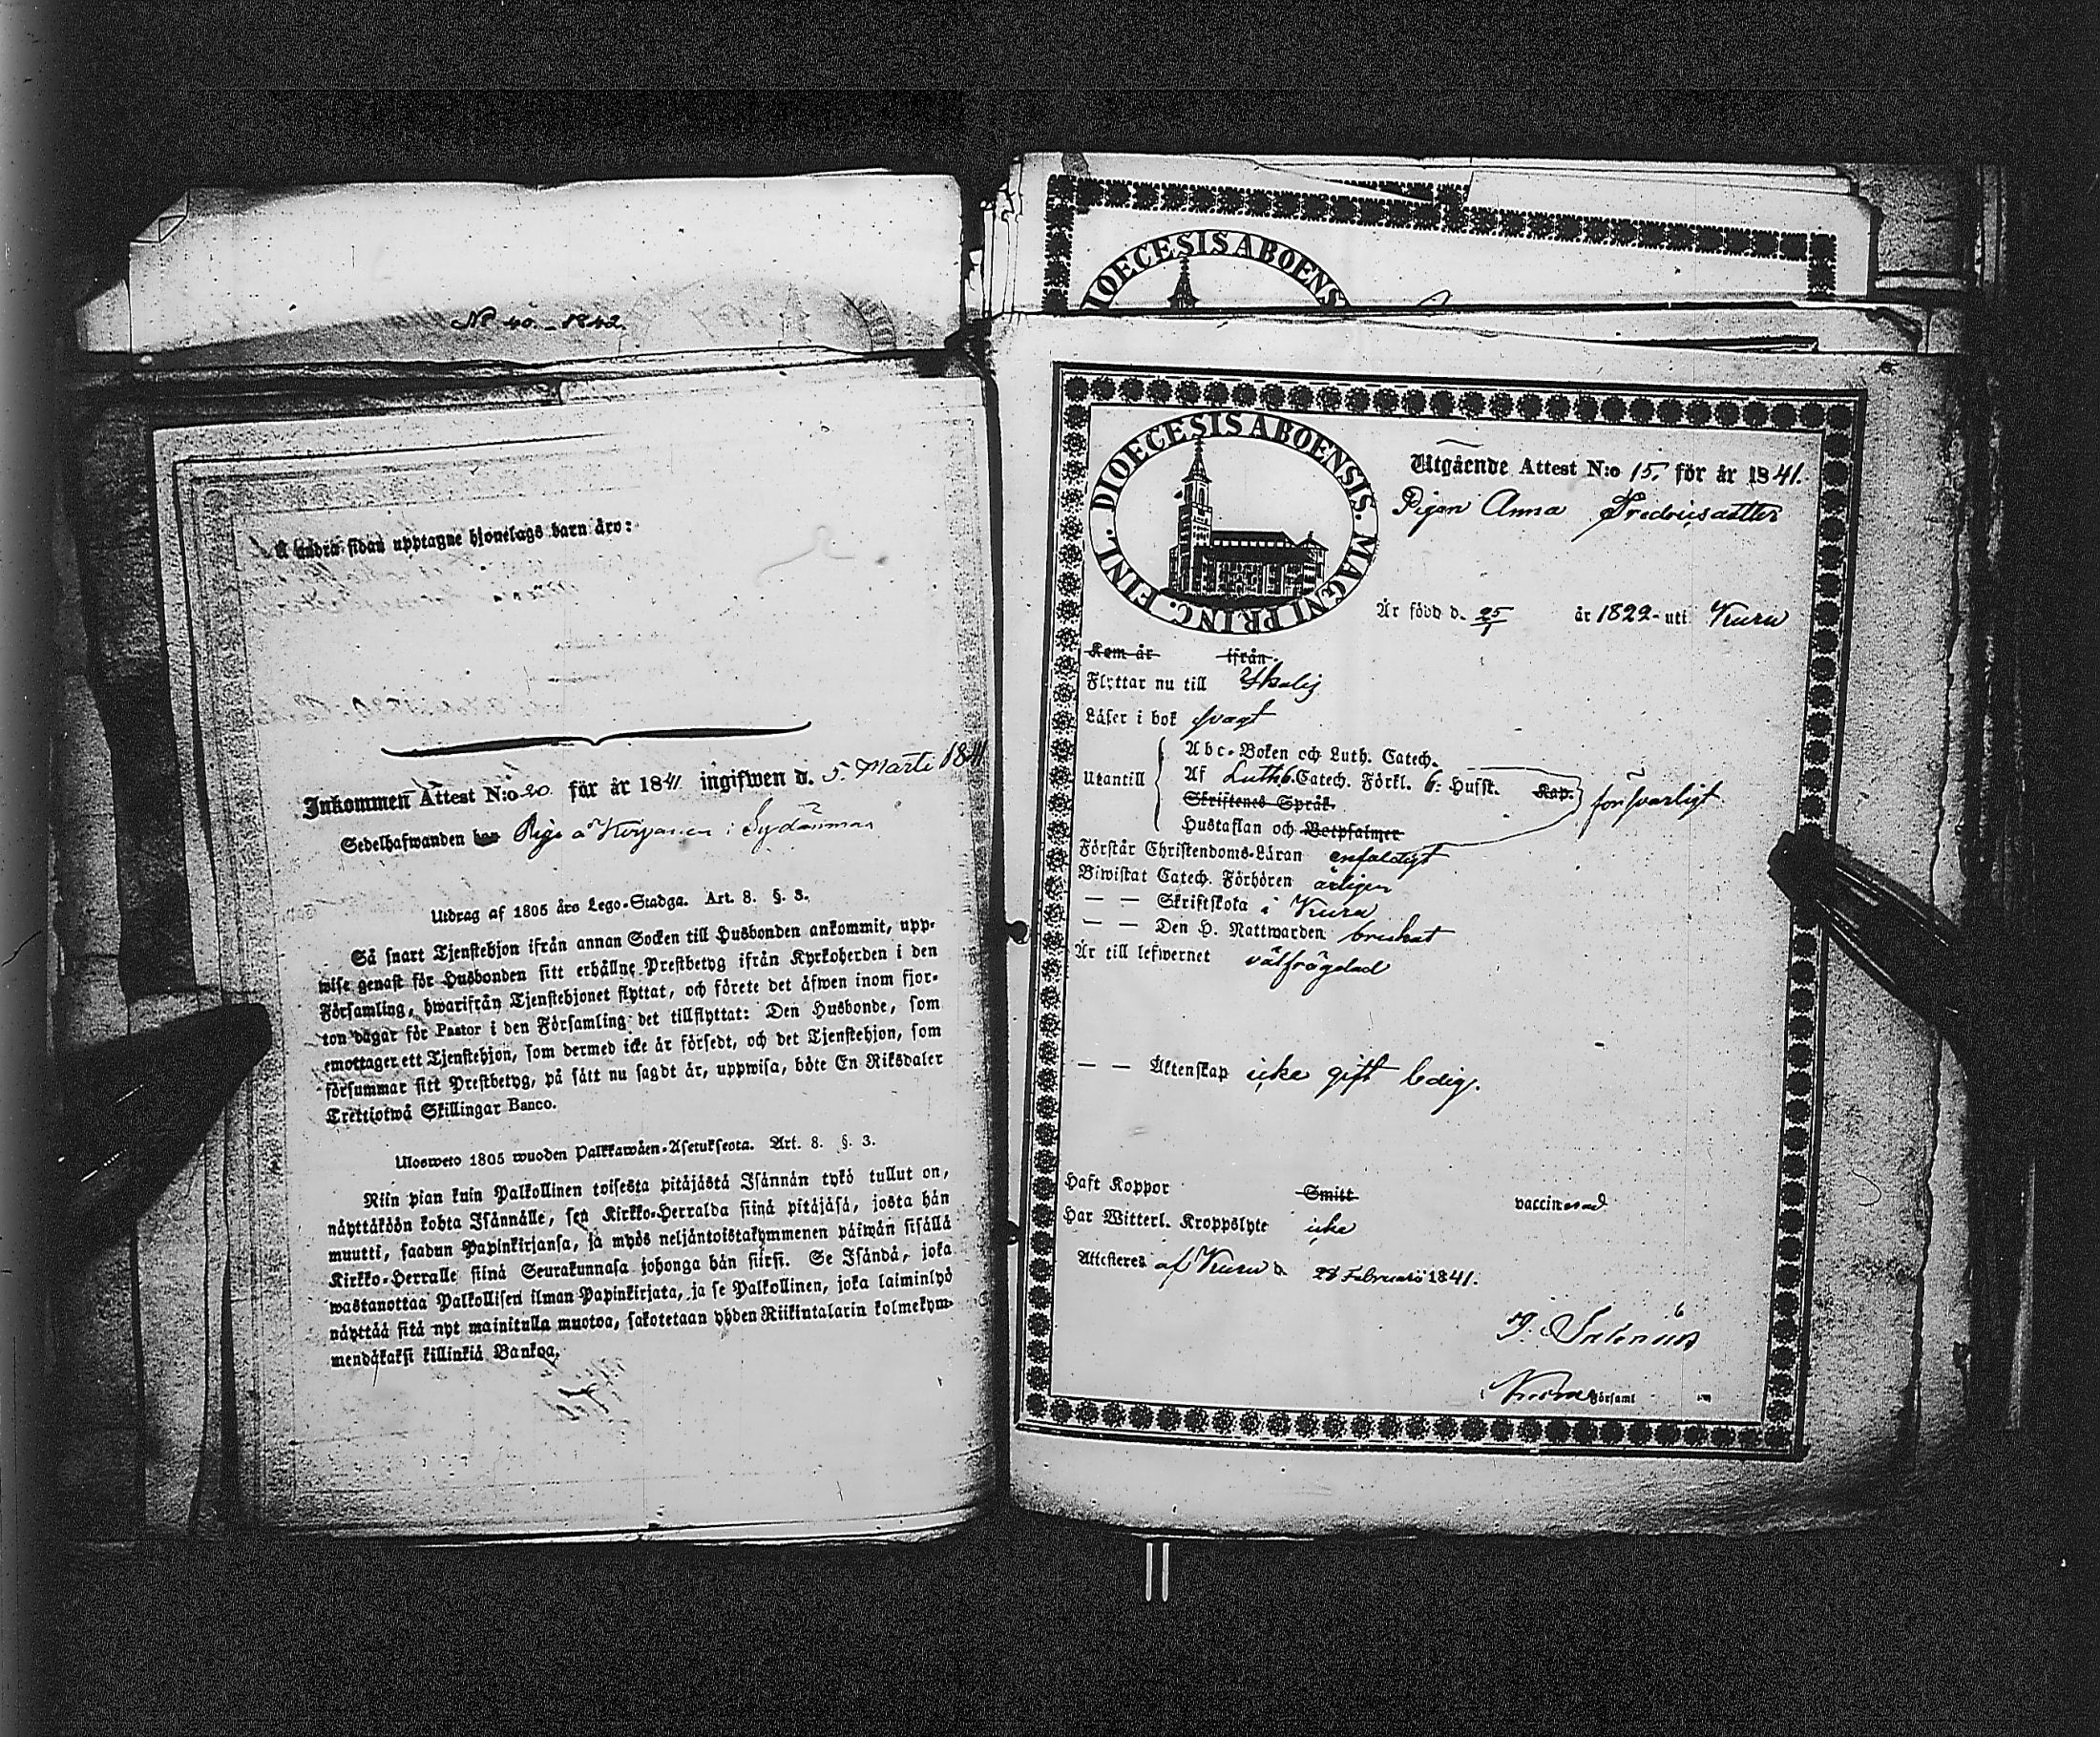 No 40. - 1842.
Å andra sidan upptagne hjonelags barn äro:
Inkommen Attest N:o 20. för år 1841 ingifwen d. 5. Martii 1841
Sedelhafwanden har Piga å Korpanen i Sydänmaa
Utdrag af 1805 års Lego-Stadga. Art. 8. §. 3.
Så snart Tjenstehjon ifrån annan Socken till Husbonden ankommit, upp-
wise genast för Husbonden sitt erhållne Prestbetyg ifrån Kyrkoherden i den
Församling, hwarifrån Tjenstehjonet flyttat, och förete det äfwen inom fjor-
ton dagar för Pastor i den Församling det tillflyttat: Den Husbonde, som
emottager ett Tjenstehjon, som dermed icke är försedt, och det Tjenstehjon, som
försummar sitt Prestbetyg, på sätt nu sagdt är, uppwisa, böte En Riksdaler
Trettiotwå Skillingar Banco.
Ulosweto 1805 wuoden Palkkawäen-Asetuksesta. Art. 8. §. 3.
Niin pian kuin Palkollinen toisesta pitäjästä Isännän tykö tullut on,
näyttäköön kohta Isännälle, sen Kirkko-Herralda siinä pitäjäsä, josta hän
muutti, saadun Papinkirjansa, ja myös neljäntoistakymmenen päiwän sisällä
Kirkko-Herralle siinä Seurakunnasa johonga hän siirsi. Se Isändä, joka
wastanottaa Palkollisen ilman Papinkirjata, ja se Palkollinen, joka laiminlyö
näyttää sitä nyt mainitulla muotoa, sakotetaan yhden Riikintalarin kolmekym-
mendäkaksi killinkiä Bankoa.
DIOECESIS ABOENS
DIOECESIS ABOENSIS. MAGNI PRINC. FINL.
Utgående Attest N:o 15. för år 1841.
Pigan Anna Fredricsdotter
Är född d. 25/1 år 1822 uti Kuru
Kom år ifrån
Flyttar nu till Ikalis
Läser i bok svagt
Utantill
Abc-Boken och Luth. Catech.
Af Luth. Catech. Förkl. 6: Hufst. Kap. försvarligt
Skriftenes Språk.
Hustaflan och Botpsalmer
Förstår Christendoms-Läran enfaldigt
Biwistat Catech. Förhören årligen
— — Skriftskola i Kuru
— — Den H. Nattwarden brukat
Är till lefwernet välfrägdad
— — Äktenskap icke gift ledig.
Haft Koppor Smitt vaccinerad
Har Witterl. Kroppslyte icke
Attesteres af Kuru d. 28 Februarii 1841.
Församl